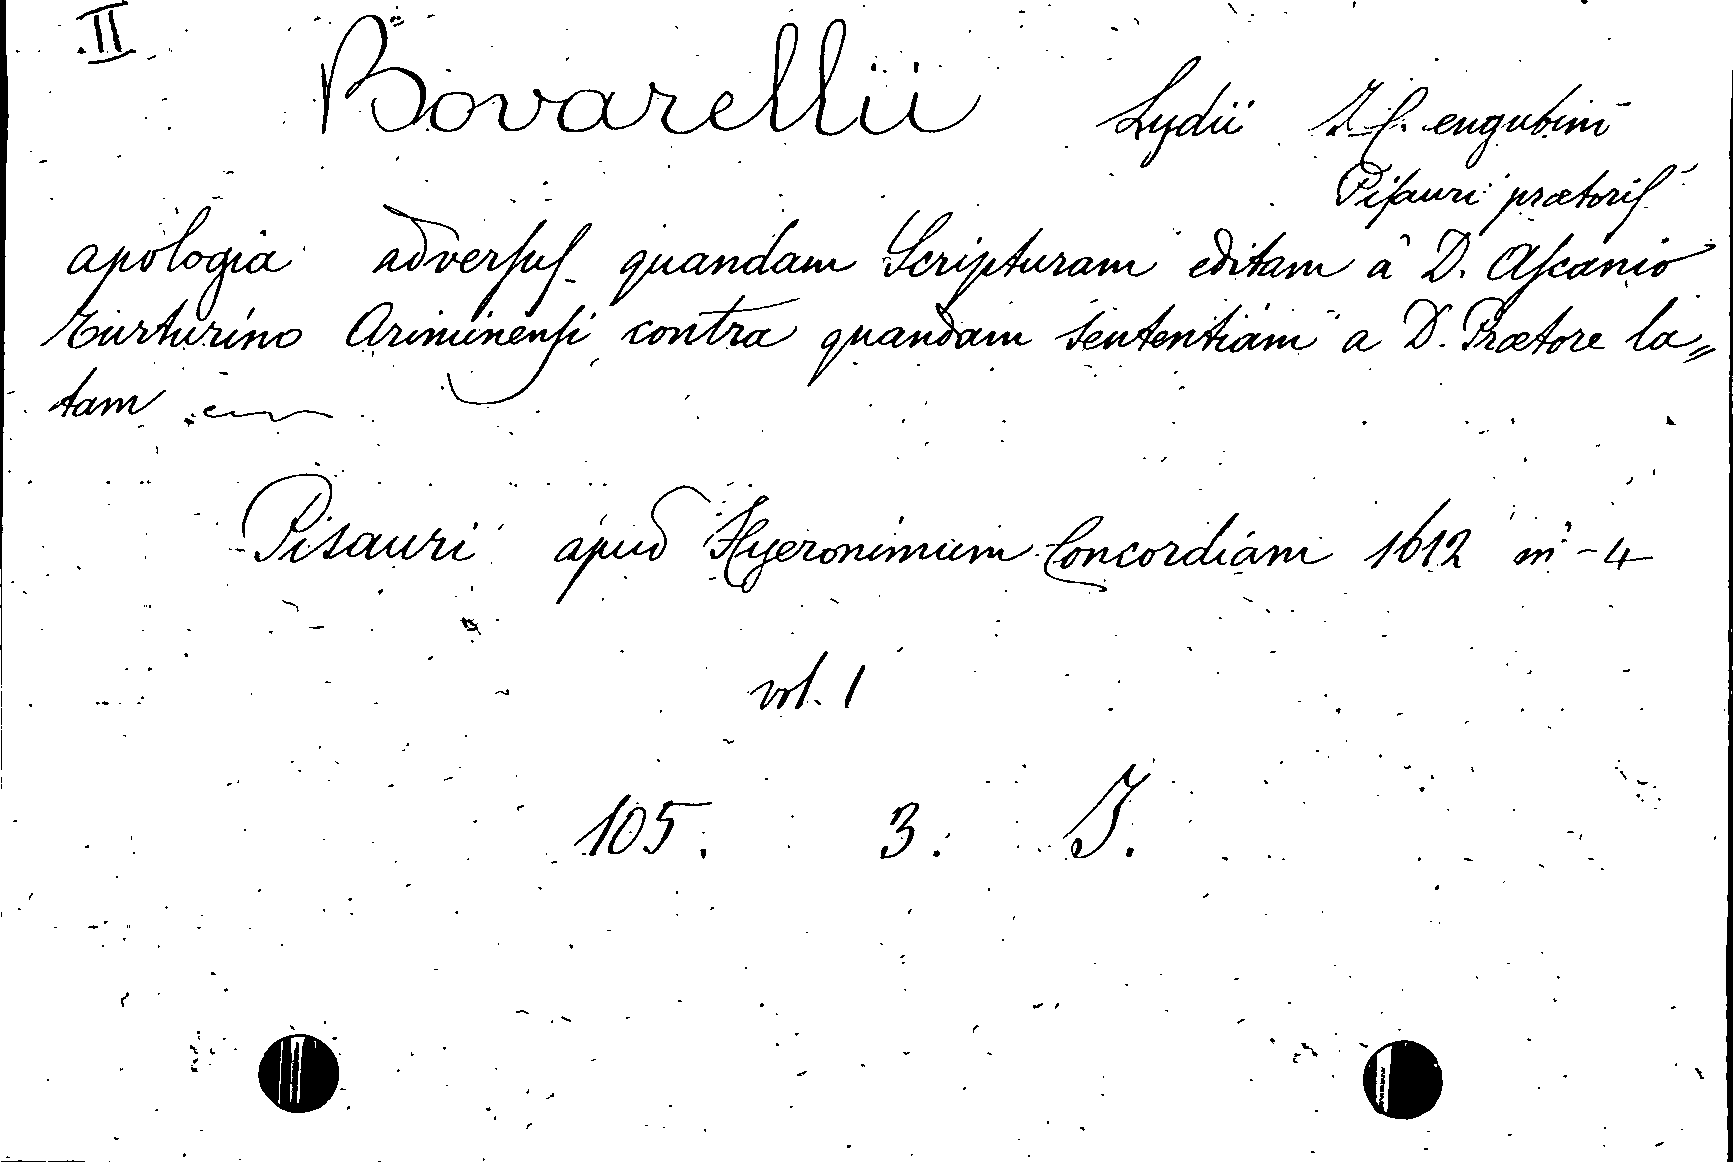 II
Bovarellii Lydii I. C. eugubini
Pisauri prætoris
apologia adversus quandam Scripturam editam à D. Ascanio
Turturino Ariminensi contra quandam sententiam a D. Prætore la„
tam
Pisauri apud Hyeronimum Concordiam 1612 in-4
vol. 1
105. 3. I.